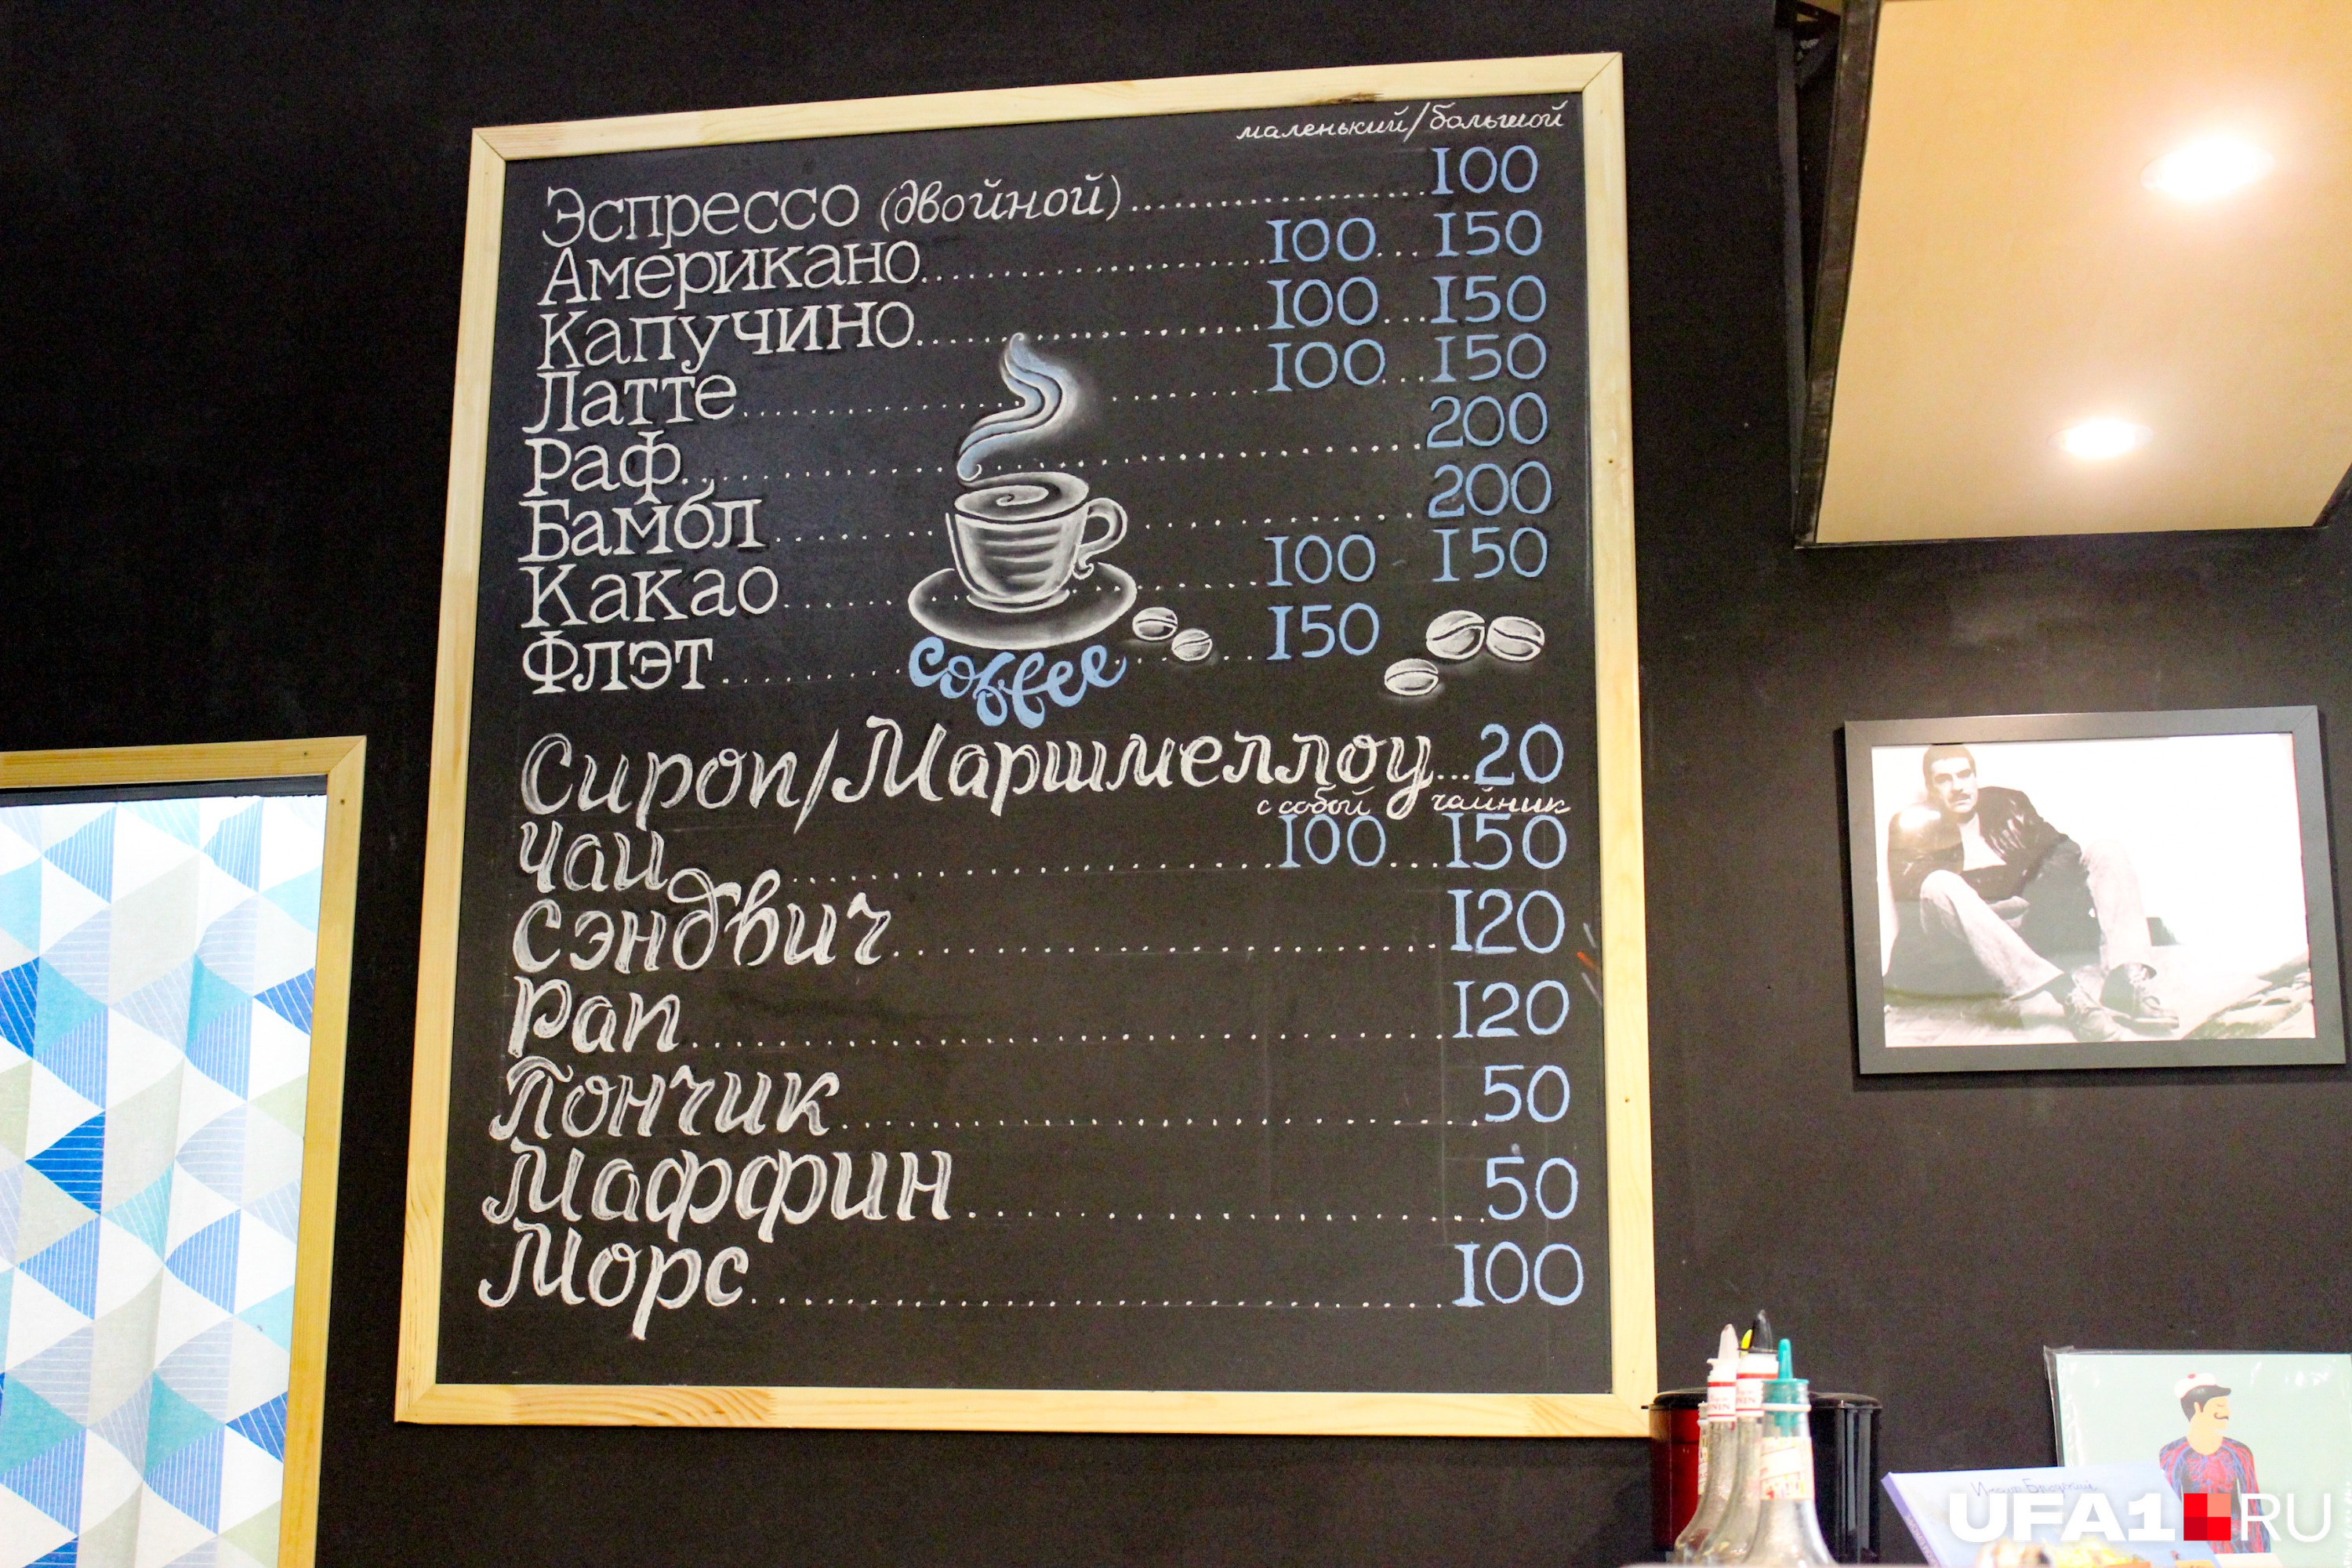 маленький/большой
Эспрессо (двойной)..............................100
Американо..............................100...150
Капучино..............................100...150
Латте..............................100...150
Раф..............................200
Бамбл..............................200
Какао..............................100 150
Флэт..............................150
coffee
Сироп/Маршмеллоу...20
с собой чайник
Чаи..............................100...150
Сэндвич..............................120
Рап..............................120
Пончик..............................50
Маффин..............................50
Морс..............................100
UFA1.RU